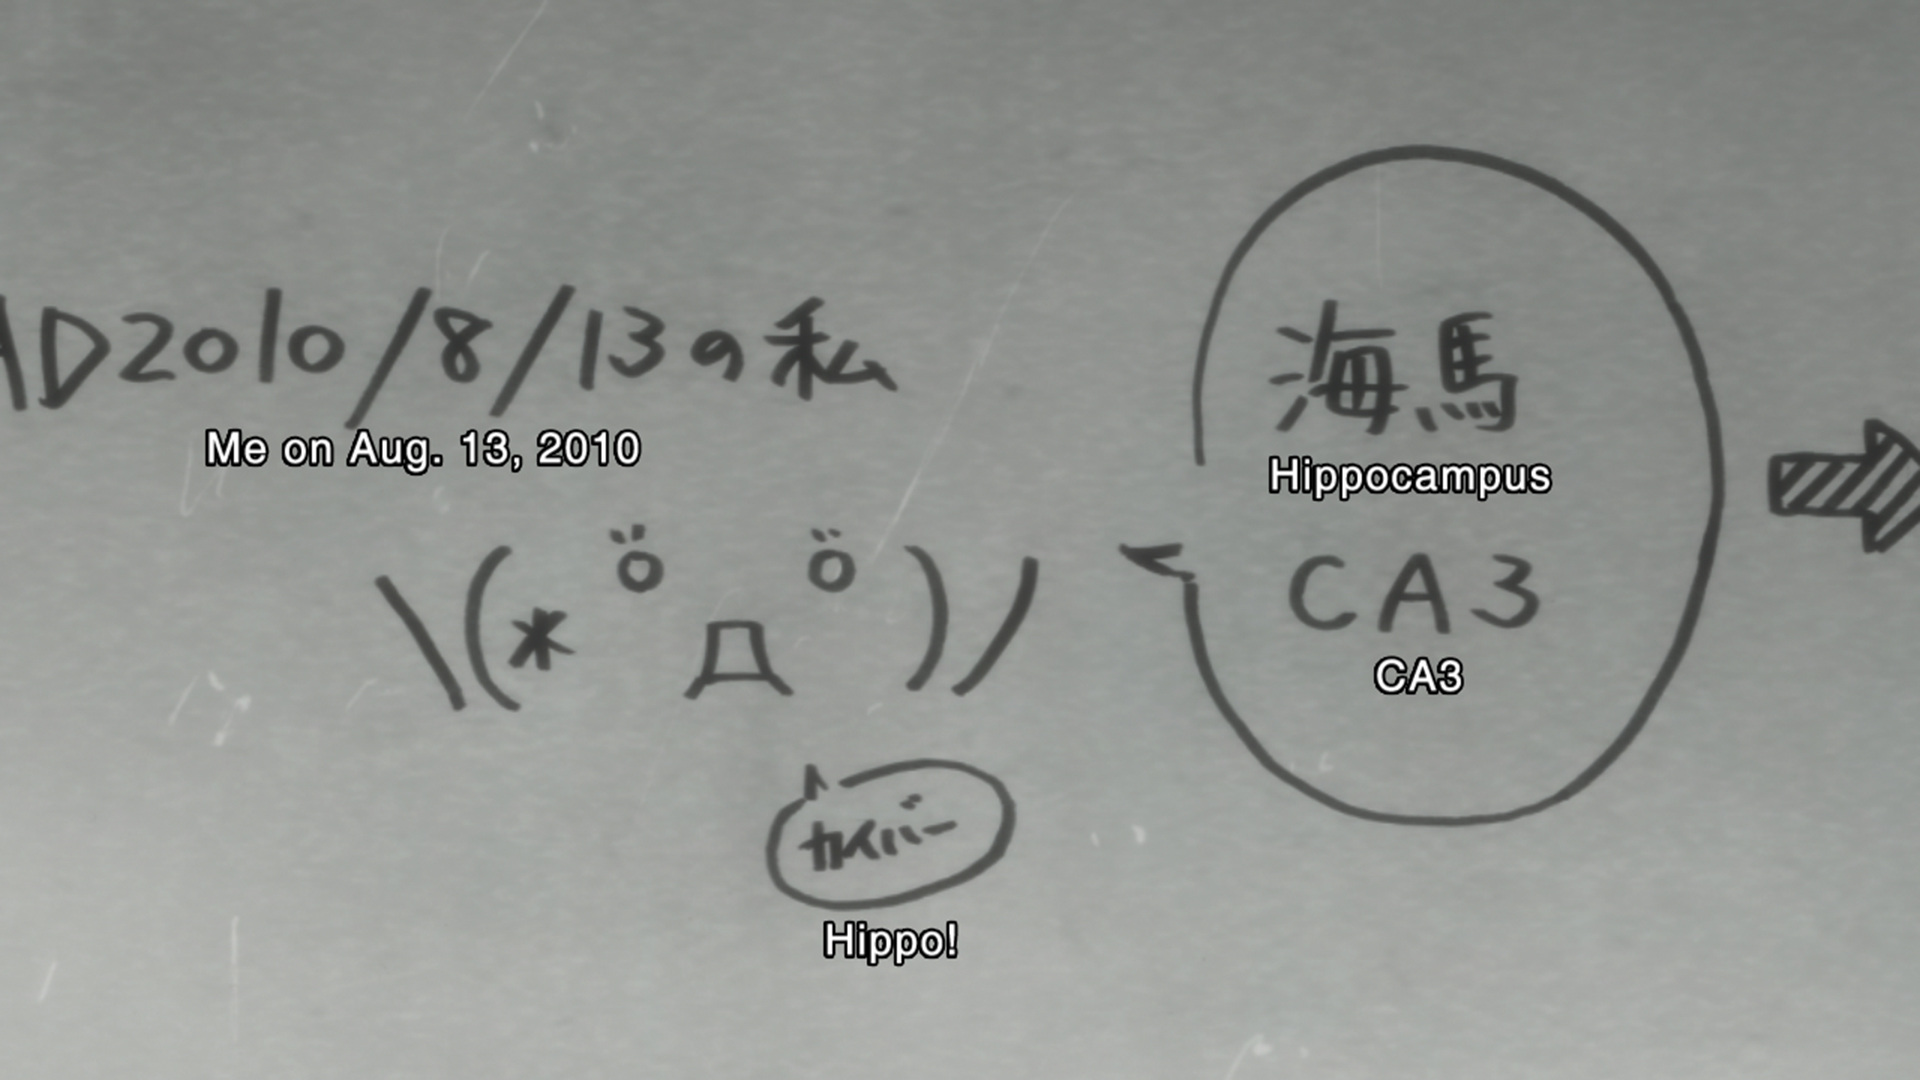 AD2010/8/13の私
Me on Aug. 13, 2010
\(* ӧ Д ӧ )/
カイバー
Hippo!
海馬
Hippocampus
CA3
CA3